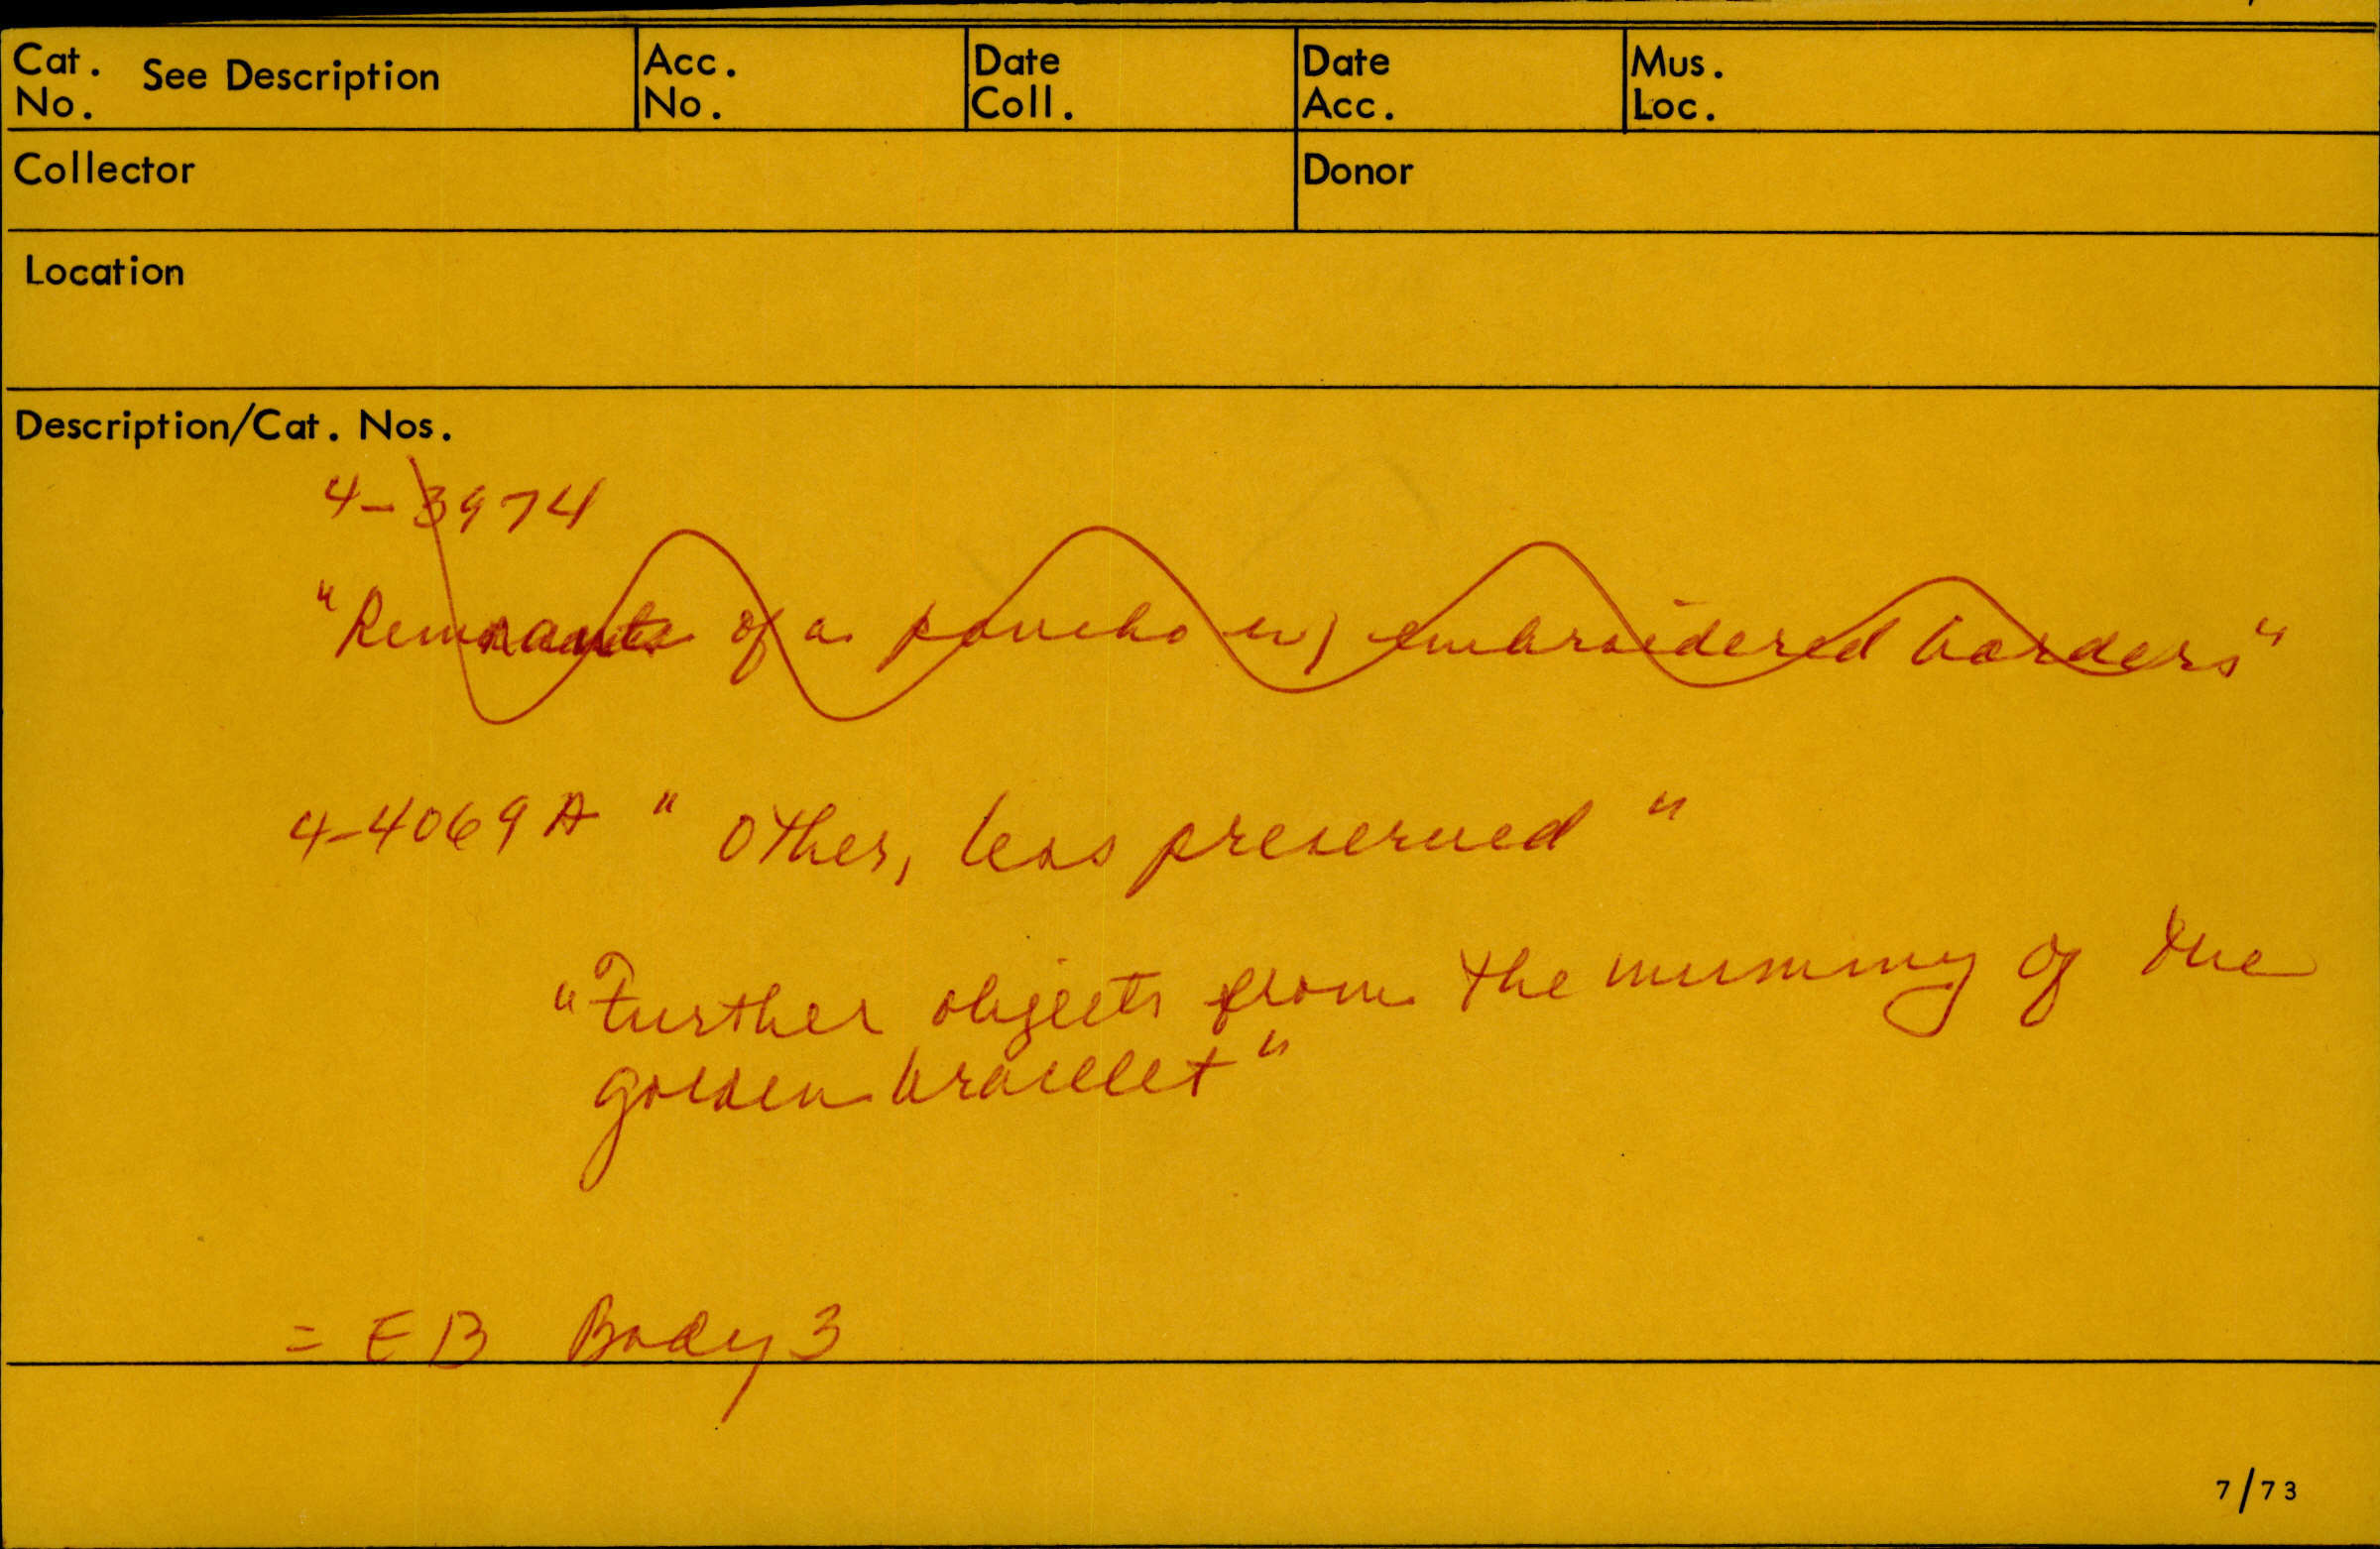 Cat. No. See Description
Acc. No.
Date Coll.
Date Acc.
Mus. Loc.
Collector
Donor
Location
Description/Cat. Nos.
4-3974
"Remnants of a poncho w/ embroidered borders"
4-4069A "Other, less preserved"
"Further objects from the mummy of the
golden bracelet"
= EB Body 3
7/73